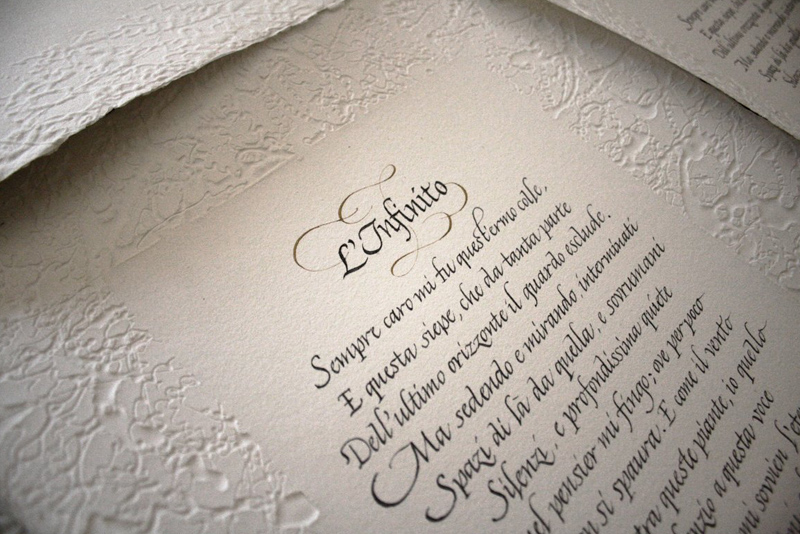 L'Infinito
Sempre caro mi fu quest'ermo colle,
E questa siepe, che da tanta parte
Dell'ultimo orizzonte il guardo esclude.
Ma sedendo e mirando, interminati
Spazi di là da quella, e sovrumani
Silenzi, e profondissima quiete
nel pensier mi fingo; ove per poco
si spaura. E come il vento
tra queste piante, io quello
a questa voce
mi sovvien